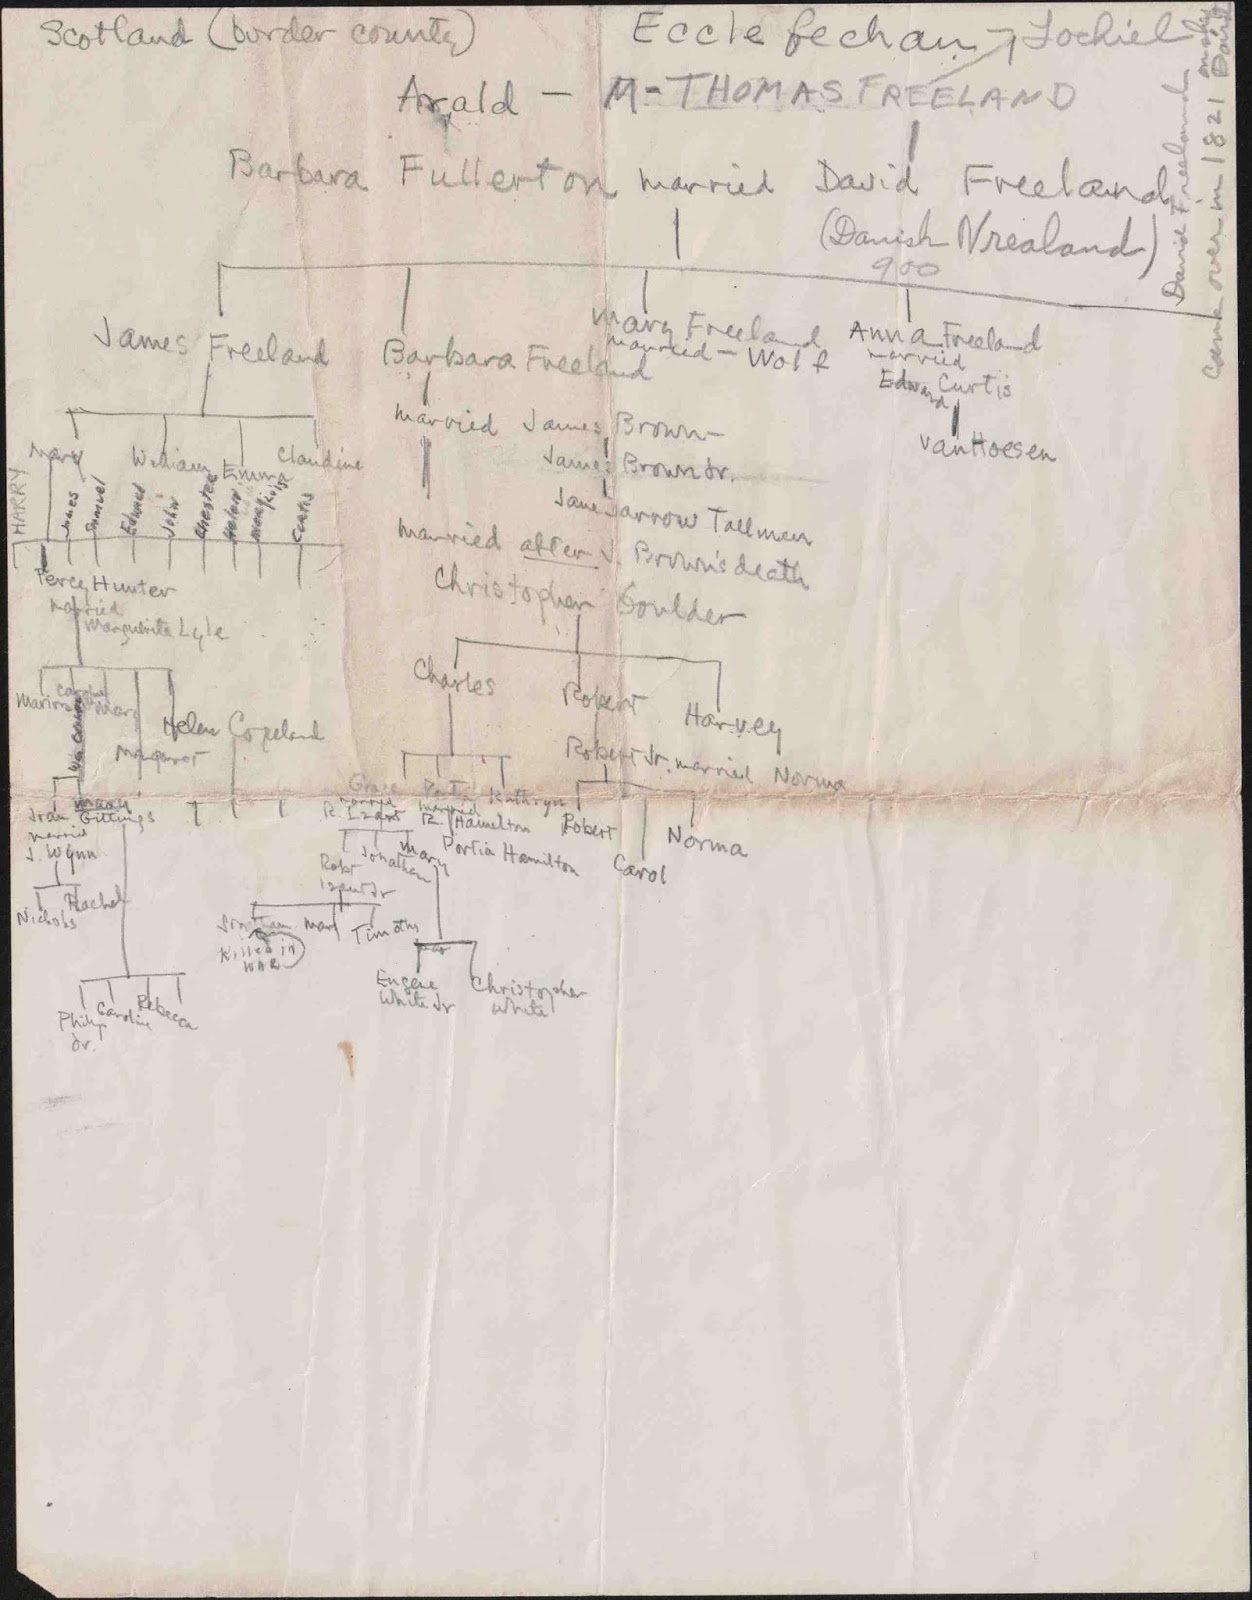 Scotland (border county)
Ecclefechan Lochiel
Arald — M- THOMAS FREELAND
Barbara Fullerton married David Freeland
(Danish Vrealand)
900
David Freeland
came over in 1821
James Freeland
Barbara Freeland
Mary Freeland
married - Wolf
Anna Freeland
married
Edward Curtis
vanHoesen
married James Brown—
James Brown Jr.
Jane Jarrow Tallman
married after J. Brown's death
Christopher Goulder
Mary
William
Emma
Claudine
HARRY
James
Samuel
Edward
John
Chester
Helen
Curtis
Percy Hunter
married
Marguerite Lyle
Charles
Robert
Harvey
Robert Jr. married Norma
Marion
Caroline
Mary
Margaret
Helen Copeland
Joan
married
J. Wynn
Mary
Gittings
Nichols
Rachel
Philip
Jr.
Caroline
Rebecca
Grace
married
R. Izant
married
R. Hamilton
Kathryn
Portia Hamilton
Robert
Carol
Norma
Robt
Izant Jr
Jonathan
Mary
Jonathan
Killed in
WAR
Mary
Timothy
Eugene
White Jr
Christopher
White